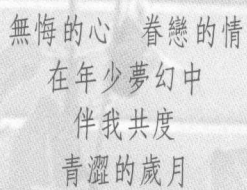 無悔的心　眷戀的情
在年少夢幻中
伴我共度
青澀的歲月